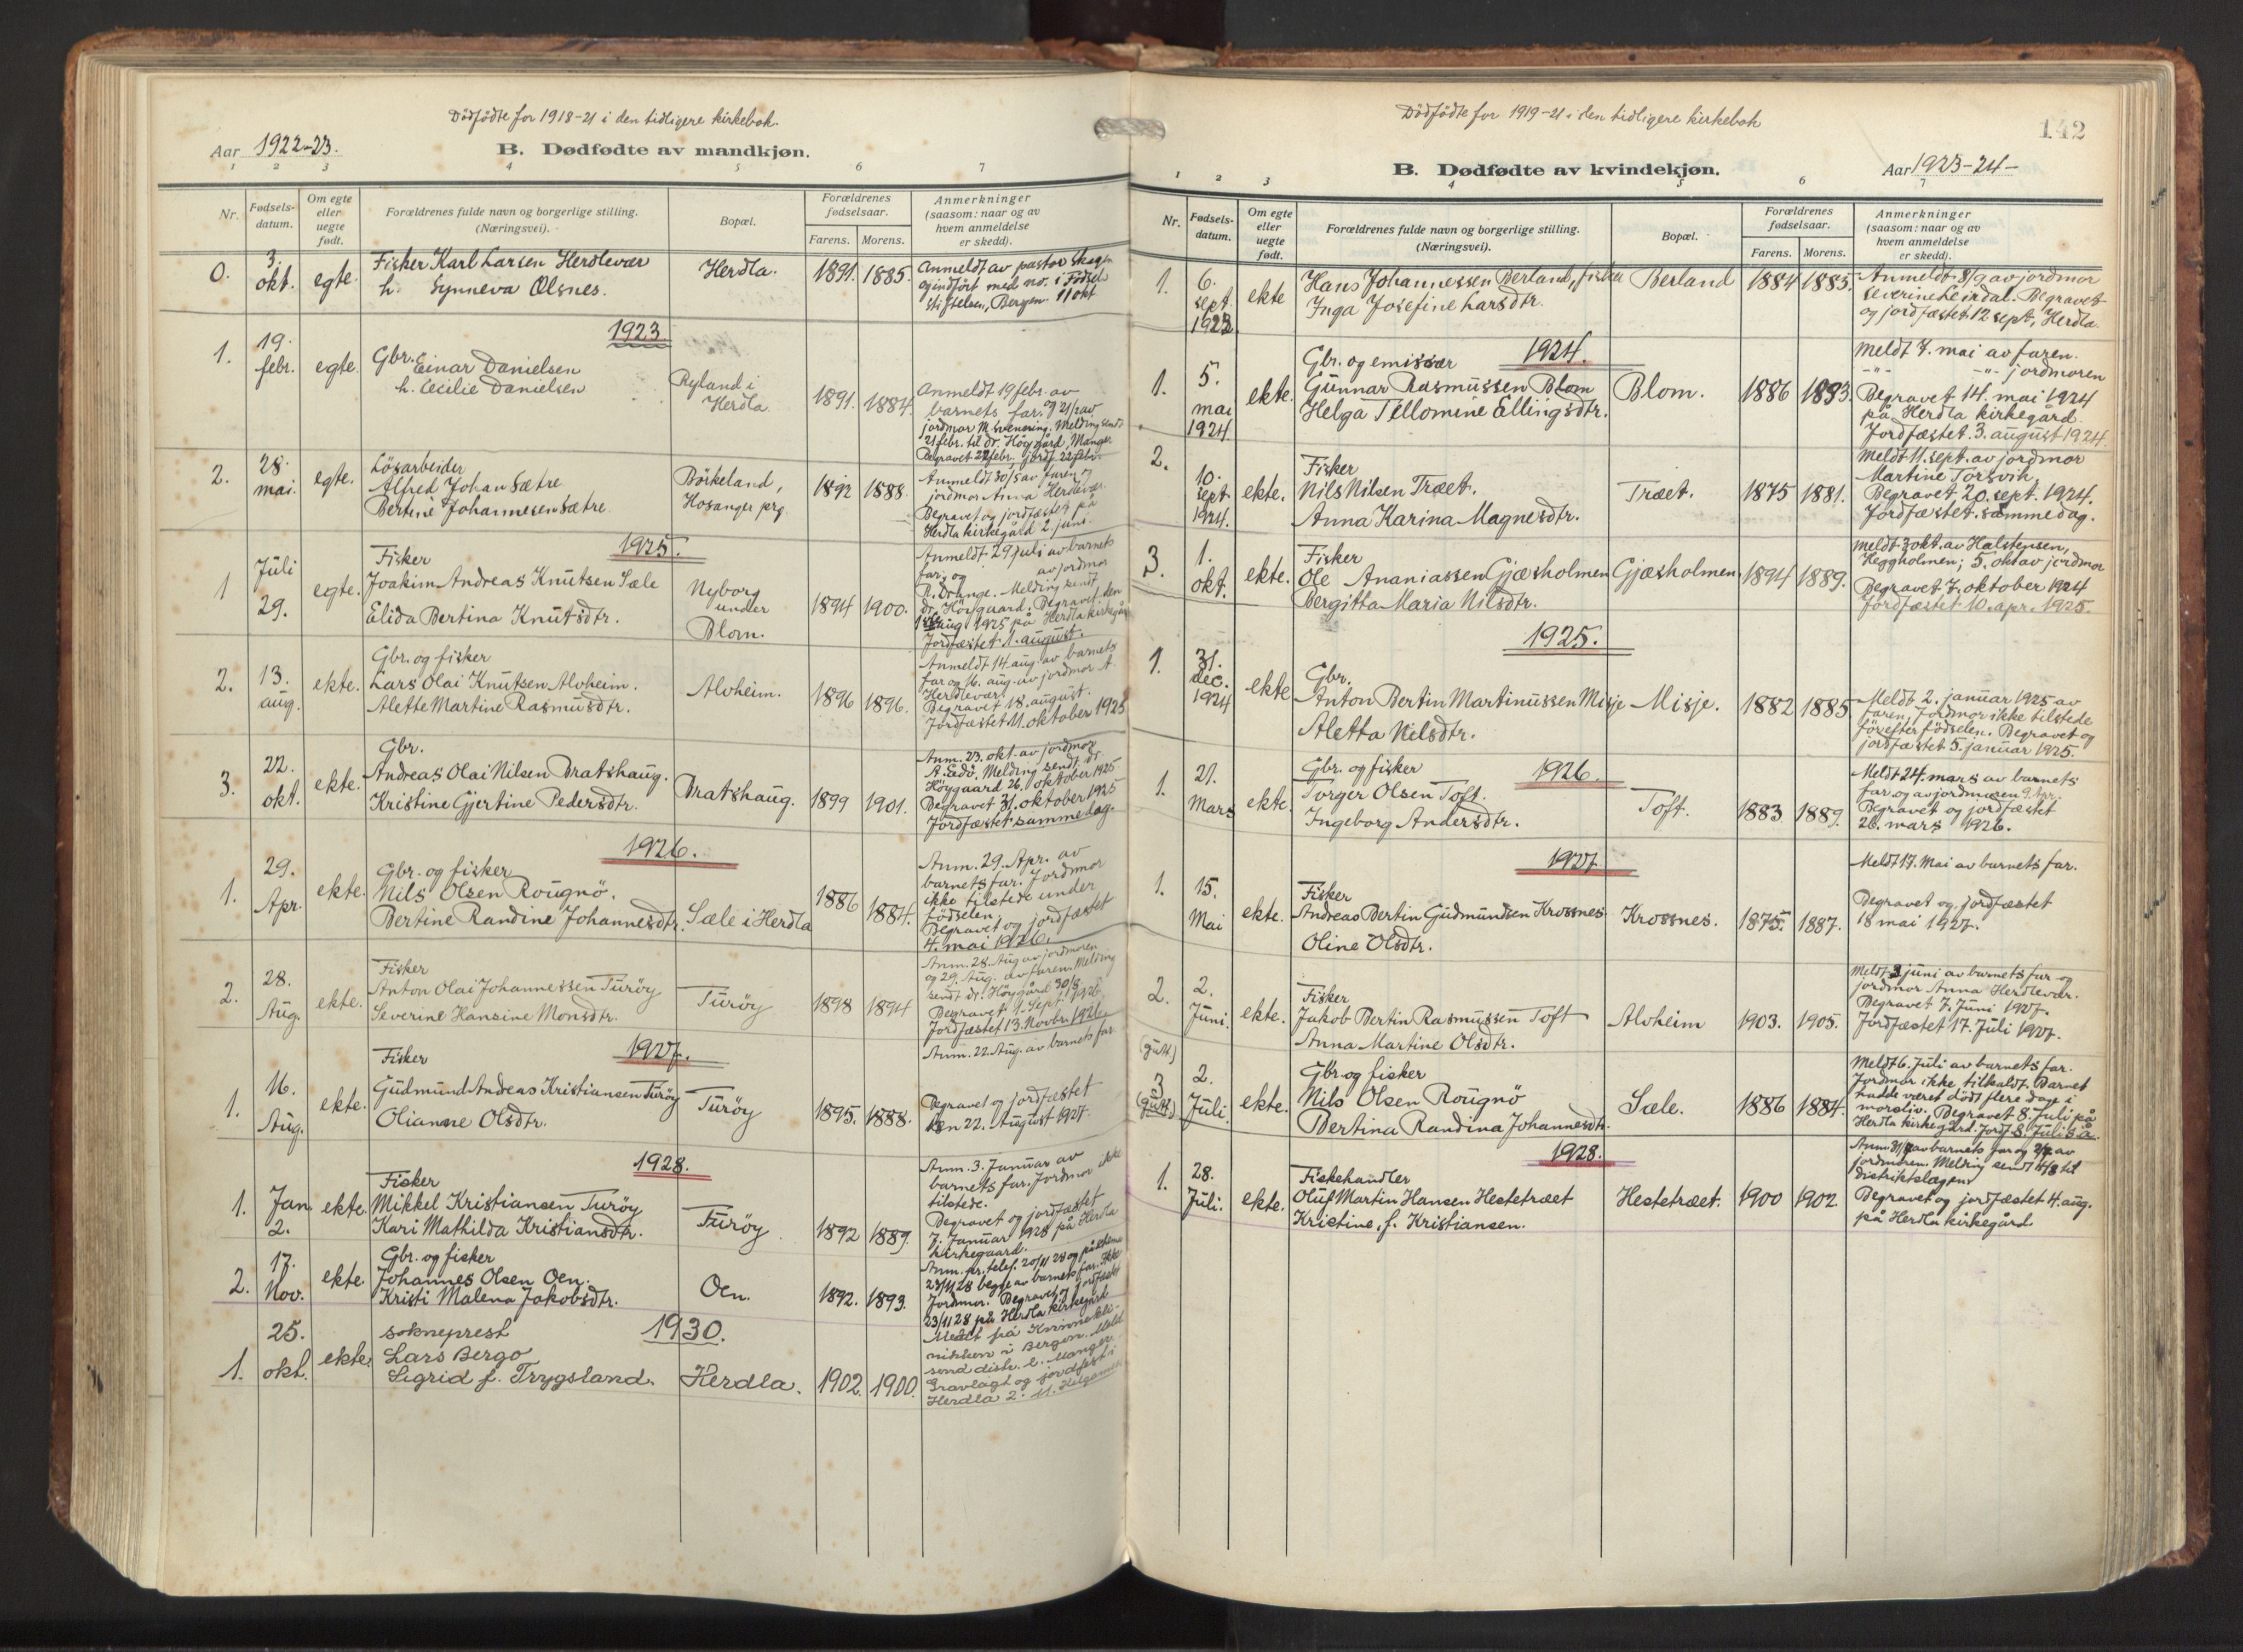 Dödfödte for 1918-21 i den tidligere kirkebok.
Aar 1922-23.
B. Dødfødte av mandkjøn.
1 2 3 4 5 6 7
Nr.
Fødsels-
datum.
Om egte
eller
uegte
født.
Forældrenes fulde navn og borgerlige stilling.
(Næringsvei).
Bopæl.
Forældrenes
fødselsaar.
Farens. Morens.
Anmerkninger
(saasom: naar og av
hvem anmeldelse
er skedd).
0. 3. okt. egte.
Fisker Karl Larsen Herdlevær
h. Synneva Olsnes.
Herdla. 1891. 1885.
Anmeldt av pastor
og indført med no. i Födsels
stiftelsen, Bergen. 11 okt
1923
1. 19. febr. egte.
Gbr. Einar Danielsen
h. Cecilie Danielsen
Ryland i
Herdla
1891. 1884.
Anmeldt 19 febr. av
barnets far, og 21/2 av
jordmor M. Svenning. Melding sendt
21 febr. til dr. Höygård, Manger.
Begravet 22 febr. jordf. 22 febr.
2. 28. mai. egte.
Lösarbeider
Alfred Johan Sætre
Bertine Johannesen Sætre.
Börkeland,
Hosanger prg.
1892 1888.
Anmeldt 30/5 av faren og
jordmor Anna Herdlevær.
Begravet og jordfæstet på
Herdla kirkegård 2 juni.
1925.
1 Juli 29. egte.
Fisker
Joakim Andreas Knutsen Sæle
Elida Bertina Knutsdtr.
Nyborg
under
Blom.
1894 1900.
Anmeldt 29 juli av barnets
far, og av jordmor
R. Drange. Melding sendt
dr. Höygaard. Begravet den
aug 1925 på Herdla kirkegård
Jordfæstet 1. august.
2. 13. aug. ekte.
Gbr. og fisker
Lars Olai Knutsen Alvheim.
Alette Martine Rasmusdtr.
Alvheim. 1896 1896.
Anmeldt 14 aug. av barnets
far og 16. aug. av jordmor A.
Herdlevær.
Begravet 18. august.
Jordfæstet 11. oktober 1925
3. 22. okt. ekte.
Gbr.
Andreas Olai Nilsen Bratshaug.
Kristine Gjertine Pedersdtr.
Bratshaug. 1899 1901.
Anm. 23. okt. av jordmor
A. Eidö. Melding sendt dr.
Höygaard 26. oktober 1925
Begravet 31. oktober 1925
Jordfæstet samme dag.
1926.
1. 29. Apr. ekte.
Gbr. og fisker
Nils Olsen Rougnö.
Bertine Randine Johannesdtr.
Sæle i Herdla
1886 1884.
Anm. 29. Apr. av
barnets far. Jordmor
ikke tilstede under
födselen.
Begravet og jordfæstet
4. mai 1926.
2. 28. Aug. ekte.
Fisker
Anton Olai Johannessen Turöy
Severine Hansine Monsdtr.
Turöy 1898 1894
Anm. 28. Aug av jordmoren
og 29. Aug. av faren. Melding
sendt dr. Höygård 30/8
Begravet 1. Sept. 1926.
Jordfæstet 13. Novbr. 1926.
1927.
1. 16. Aug. ekte.
Fisker
Gudmund Andreas Kristiansen Turöy
Olianne Olsdtr.
Turöy 1895. 1888.
Anm. 22. Aug. av barnets far
Begravet og jordfæstet
den 22. August 1927.
1928.
1. Jan. 2. ekte.
Fisker
Mikkel Kristiansen Turöy
Kari Mathilda Kristiansdtr.
Turöy. 1892 1889.
Anm. 3. Januar av
barnets far. Jordmor ikke
tilstede.
Begravet og jordfæstet
7. Januar 1928 på Herdla
kirkegaard.
2. 17. Nov. ekte.
Gbr. og fisker
Johannes Olsen Oen.
Kristi Malena Jakobsdtr.
Oen. 1892. 1893.
Anm. pr. telef. 20/11 28 og på skema
23/11 28 begge av barnets far. Ikke
Jordmor. Begravet og jordfæstet
23/11 28 på Herdla kirkegård
1930.
1. 25. okt. ekte.
sokneprest
Lars Bergo
Sigrid f. Trygsland.
Herdla. 1902. 1900.
Meldt frå Kvinnekli-
nikken i Bergen. Meld
send distr. l. Manger.
Gravlagt og jordfest i
Herdla 2. 11.
Dödfödte for 1919-21 i den tidligere kirkebok
142
B. Dødfødte av kvindekjøn.
Aar 1923-24-
1 2 3 4 5 6 7
Nr.
Fødsels-
datum.
Om egte
eller
uegte
født.
Forældrenes fulde navn og borgerlige stilling.
(Næringsvei).
Bopæl.
Forældrenes
fødselsaar.
Farens. Morens.
Anmerkninger
(saasom: naar og av
hvem anmeldelse
er skedd).
1. 6. sept. 1923 ekte
Hans Johannessen Berland, fisker
Inga Josefine Larsdtr.
Berland 1884 1885.
Anmeldt 8/9 av jordmor
Severine Leirdal. Begravet
og jordfæstet 12 sept, Herdla.
1924.
1. 5. mai 1924 ekte.
Gbr. og emissær
Gunnar Rasmussen Blom
Helga Tellomine Ellingsdtr.
Blom. 1886 1893.
Meldt 7. mai av faren.
-"- -"- jordmoren
Begravet 14. mai 1924
på Herdla kirkegård.
Jordfæstet 3. august 1924
2. 10. sept. 1924. ekte.
Fisker
Nils Nilsen Træet.
Anna Karina Magnesdtr.
Træet. 1875 1881.
Meldt 11. sept. av jordmor
Martine Torsvik,
Begravet 20. sept. 1924.
Jordfæstet samme dag.
3. 1. okt. ekte.
Fisker
Ole Ananiassen Gjæsholmen
Bergitta Maria Nilsdtr.
Gjæsholmen 1894 1889.
Meldt 3 okt. av Halstensen,
Heggholmen; 5. okt av jordmor
Begravet 7. oktober 1924
Jordfæstet 10. apr. 1925.
1925.
1. 31. dec. 1924 ekte
Gbr.
Anton Bertin Martinussen Misje
Aletta Nilsdtr.
Misje. 1882 1885.
Meldt 2. januar 1925 av
faren. Jordmor ikke tilstede
för efter födselen. Begravet og
jordfæstet 5. januar 1925.
1926.
1. 21. Mars ekte.
Gbr. og fisker
Torger Olsen Toft.
Ingeborg Andersdtr.
Toft. 1883 1889.
Meldt 24. mars av barnets
far og av jordmoren 9. Apr.
Begravet og jordfæstet
26. mars 1926.
1927
1. 15. Mai ekte.
Fisker
Andreas Bertin Gudmundsen Krossnes
Oline Olsdtr.
Krossnes. 1875. 1887.
Meldt 17. Mai av barnets far.
Begravet og jordfæstet
18 mai 1927.
2. 2. Juni. ekte.
Fisker
Jakob Bertin Rasmussen Toft
Anna Martine Olsdtr.
Alvheim 1903. 1905.
Meldt 3 juni av barnets far og
jordmor Anna Herdlevær.
Begravet 7. Juni 1927.
Jordfæstet 17. Juli 1927.
(gutt)
3 (gutt) 2. Juli. ekte.
Gbr. og fisker
Nils Olsen Rougnö
Bertina Randina Johannesdtr.
Sæle. 1886 1884.
Meldt 6. Juli av barnets far.
Jordmor ikke tilkaldt. Barnet
hadde været dödt flere dage i
morsliv. Begravet 8. Juli på
Herdla kirkegård. Jordf. 8. Juli s.å.
1928.
1. 28. Juli. ekte.
Fiskehandler
Oluf Martin Hansen Hestetræet
Kristine, f. Kristiansen.
Hestetræet. 1900 1902.
Anm. 31/7 av barnets far og av
jordmoren. Melding sendt 4/8 til
distriktslægen
Begravet og jordfæstet 4. aug.
på Herdla kirkegård.